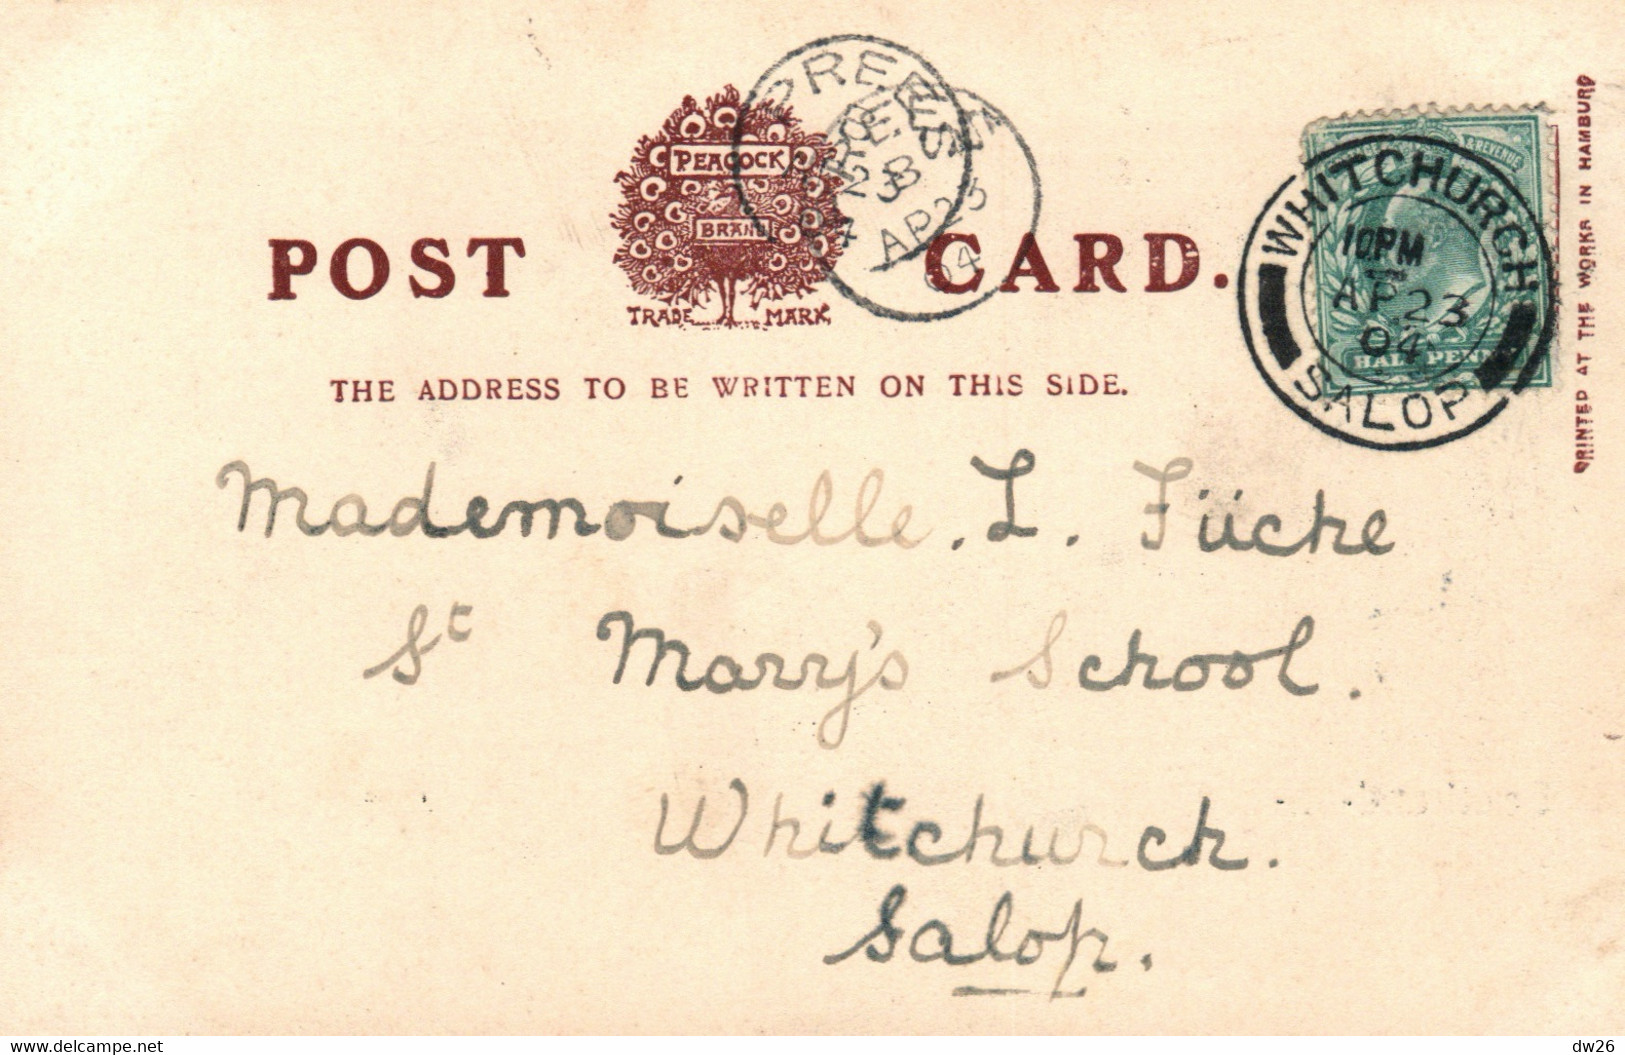 PREES
AP 23
04
PEACOCK
BRAND
TRADE MARK
POST CARD.
THE ADDRESS TO BE WRITTEN ON THIS SIDE.
WHITCHURCH
10 PM
AP 23
04
SALOP
& REVENUE
HALF PENNY
PRINTED AT THE WORKS IN HAMBURG
Mademoiselle. L. Fücke
St Mary's School.
Whitchurch.
Salop.
www.delcampe.net
dw26